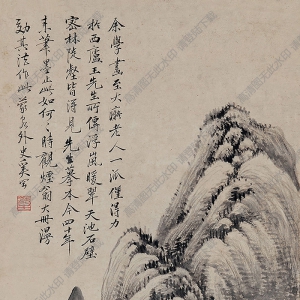 余學畫至大癡老人一派僅得力
於西廬王先生所傳浮嵐暖翠天池石壁
密林陡壑皆得見先生摹本今四十年
來筆墨止此如何如何時觀煙翁大冊漫
效其法作此 蒙泉外史奚岡